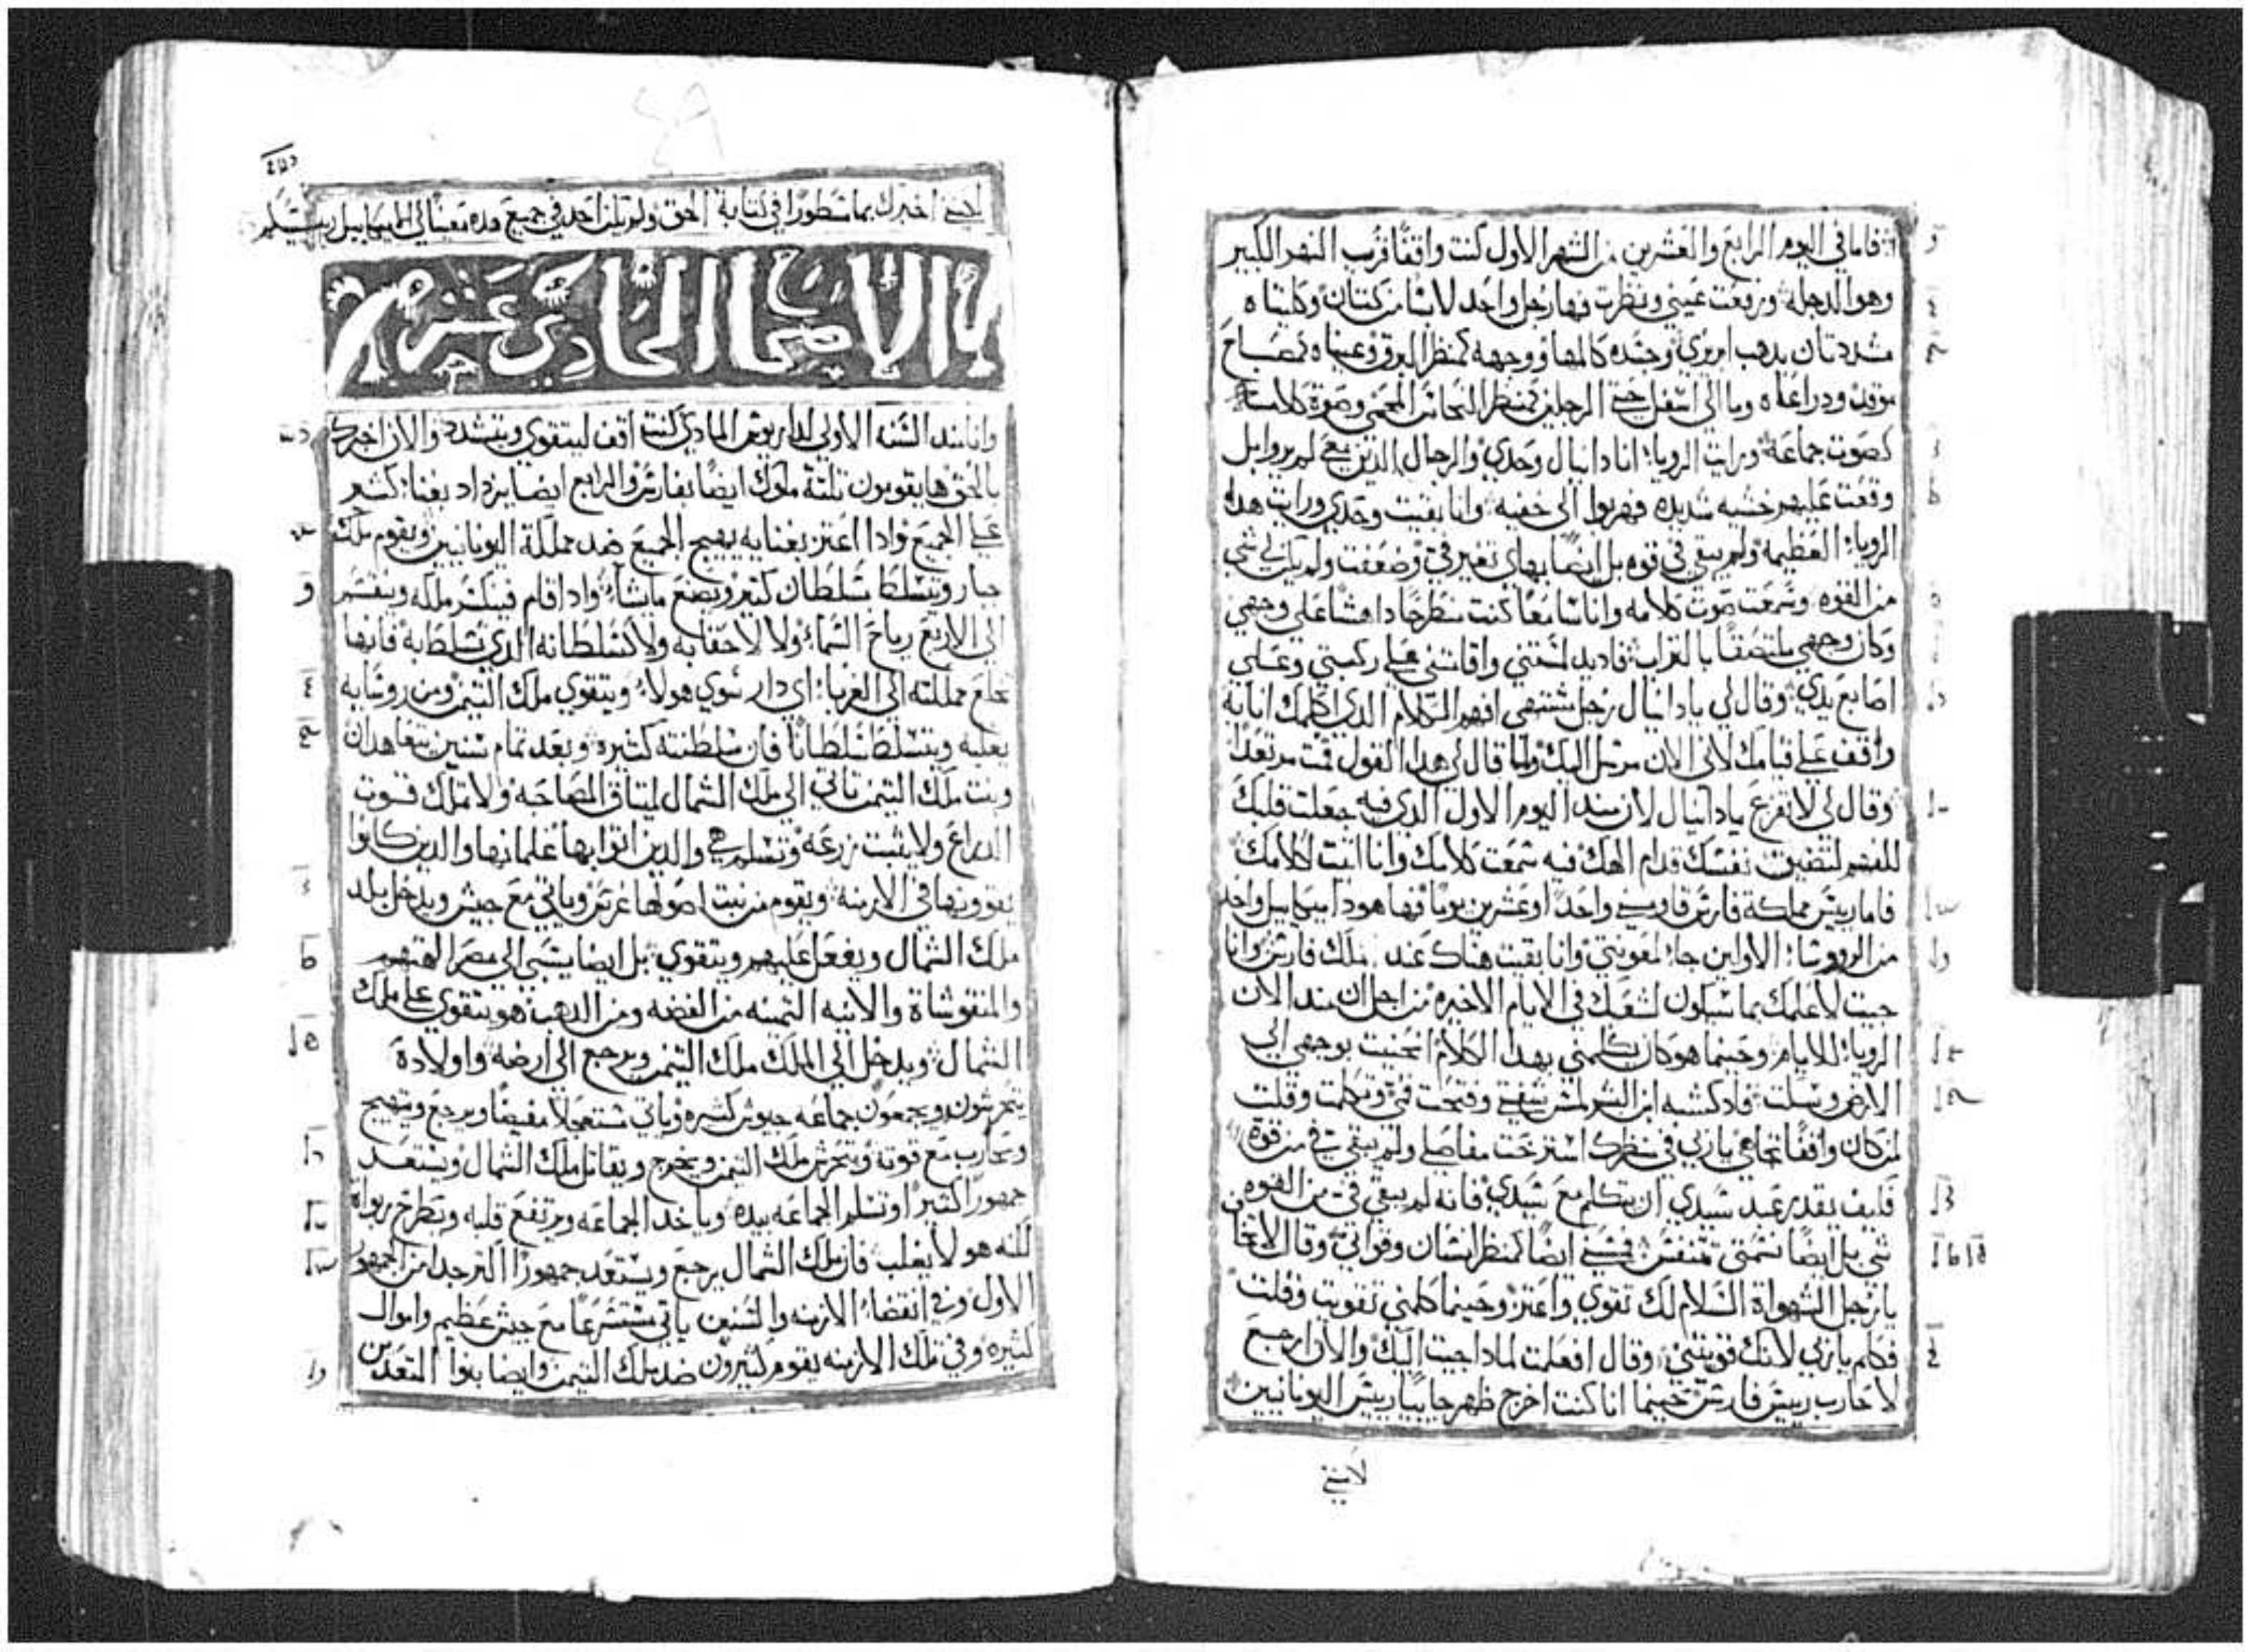 فاما في اليوم الرابع والعشرين من الشهر الاول كنت واقفًا قرب النهر الكبير
وهو الدجله ورفعت عيني ونظرت فها رجل واحد لابسًا من كتان وكليتاه
مشددتان بدهب ابريزي وجسده كالمها ووجهه كمنظر البرق وعيناه كمصباح
موقد ودراعاه وما الي اسفل حتي الرجلين كمنظر النحاس المحمي وصوة كلامه
كصوت جماعة ورايت الرويا انا دانيال وحدي والرجال الدين معي لم يروا بل
وقعت عليهم خشيه شديده فهربوا الي خفيه وانا بقيت وحدي ورايت هدا
الرويا العظيمة ولم يبقي في قوه بل ايضًا بهاي تغير في وضعفت ولم يكن لي شي
من القوه وسمعت صوت كلامه وانا سامعًا كنت منطرحًا داهشًا علي وجهي
وكان وجهي ملتصقًا بالتراب فاد يد لمستني واقامتني علي ركبتي وعلي
اصابع يدي وقال لي يا دانيال رجل شتهي افهم الكلام الدي اكلمك انا به
واقف علي قيامك لاني الان مرسل اليك ولما قال لي هدا القول قمت مرتعدًا
وقال لي لا تفزع يا دانيال لان مند اليوم الاول الدي فيه جعلت قلبك
للفهم لتضيق نفسك قدام الهك فيه سمعت كلامك وانا اتيت لكلامك
فاما رييس مملكة فارس قاومني واحدًا وعشرين يومًا فها هودا ميكاييل واحد
من الرووسا الاولين جا لمعونتي وانا بقيت هناك عند ملك فارس وانا
جيت لاعلمك بما سيكون لشعبك في الايام الاخيره من اجل ان مند الان
الرويا للايام وحينما هو كان يكلمني بهدا الكلام انحنيت بوجهي الي
الارض وسكت فاد كشبه ابن البشر لمس شفتي وفتحت فمي وتكلمت وقلت
لمن كان واقفًا تجاهي يا ربي في منظرك استرخت مفاصلي ولم يبقي في من قوة
فكيف يقدر عبد سيدي ان يتكلم مع سيدي فانه لم يبقي في من القوه
شي بل ايضًا نسمتي فلمسني ايضًا كمنظر انسان وقواني وقال لا تخاف
يا رجل الشهواة السلام لك تقوي واعتز وحينما كلمني تقويت وقلت
فكلم يا ربي لانك قويتني وقال افعلمت لمادا جيت اليك والان ارجع
لاحارب رييس فارس حينما انا كنت اخرج ظهر جاييًا رييس اليونانيين
لاكنني
اخبرك بما سطورًا في كتابة الحق ولم يكن احد في جميع هده معينًا لي الا ميكاييل رييسكم
الاصحاح الحادي عشر
وانا مند السنه الاولي لداريوس المادي كنت اقف ليتقوي ويتشدد والان اخبرك
بالحق ها يقومون تلتة ملوك ايضًا بفارس والرابع ايضا يزداد بغنا كتير
علي الجميع وادا اعتز بغنايه يهيج الجميع ضد مملكة اليونانيين ويقوم ملك
جبار ويتسلط سلطان كتير ويصنع ما يشاء وادا قام فينكسر ملكه وينقسم
الي الاربع رياح السماء ولا لاحقابه ولا كسلطانه الدي تسلط به فانها
تخلع مملكته الي الغربا اي دار سوي هولاء ويتقوي ملك التيمن ومن روسايه
يغلبه ويتسلط سلطانًا فان سلطنته كتيره وبعد تمام سنين يتعاهدان
وبنت ملك التيمن تاتي الي ملك الشمال ليتاق المصاحبه ولا تملك قوت
الدراع ولا يثبت زرعه وتسلم هي والدين اتوا بها غلمانها والدين كانوا
يقوونها في الازمنه ويقوم من نبت اصولها غرس وياتي مع جيش ويدخل بلد
ملك الشمال ويفعل عليهم ويتقوي بل ايضا يسبي الي مصر الهتهم
والمنقوشاة والانيه التمينه من الفضه ومن الدهب هو يتقوي علي ملك
الشمال ويدخل الي الملك ملك التيمن ويرجع الي ارضه واولادة
يتحرشون ويجمعون جماعه جيوش كتيره وياتي مستعجلًا مفيضًا ويرجع ويتهيج
ويحارب مع قوته ويتحرش ملك التيمن ويخرج ويقاتل ملك الشمال ويستعد
جمهورًا كتيرًا وتسلم الجماعه بيده وياخد الجماعه ويرتفع قلبه ويطرح ربواة
لكنه هو لا يغلب فان ملك الشمال يرجع ويستعد جمهورًا اكتر جدا من الجمهور
الاول وفي انقضاء الازمنه والسنين ياتي مستسرعًا مع جيش عظيم واموال
كتيره وفي تلك الازمنه يقوم كتيرون ضد ملك التيمن وايضا بنوا التعديين